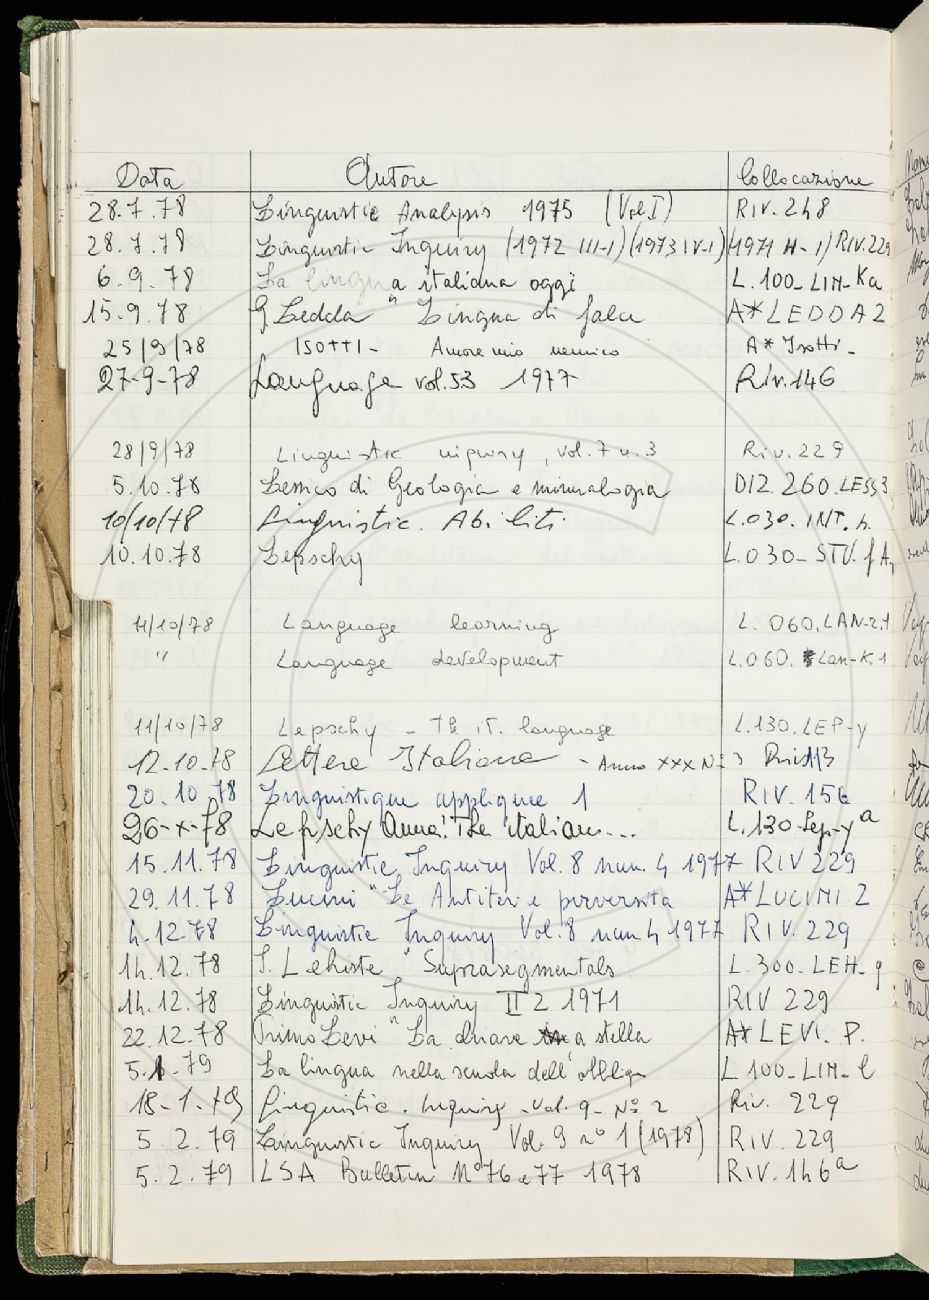 Data Autore Collocazione
28.7.78 Linguistic Analysis 1975 (Vol I) RIV. 248
28.7.78 Linguistic Inquiry (1972 III-1) (1973 IV-1) (1971 II-1) RIV. 229
6.9.78 La lingua italiana oggi L.100-LIN-Ka
15.9.78 G Ledda " Lingua di falce A*LEDDA2
25/9/78 ISOTTI- Amore mio nemico A* Isotti-
27-9-78 Language vol.53 1977 Riv.146
28/9/78 Linguistic inquiry, vol.7 n.3 Riv.229
5.10.78 Lessico di Geologia e mineralogia DIZ 260.LESS3
10/10/78 Linguistic. Abiliti. L.030. INT. h.
10.10.78 Lepschy L.030-STU.
11/10/78 Language learning L.060.LAN-2.1
" Language development L.060. Lan-K.1
11/10/78 Lepschy - The it. language L.130.LEP-y
12.10.78 Lettere Italiane - Anno XXX N. 3 Riv.113
20.10.78 Linguistique appliquée 1 RIV. 156
26-X-78 Lepschy Anna: The italian... L.130-Lep-yª
15.11.78 Linguistic Inquiry Vol. 8 num. 4 1977 RIV 229
29.11.78 Lucini "Le Antiteri e perversita A*LUCINI 2
4.12.78 Linguistic Inquiry Vol. 8 num 4 1977 RIV. 229
14.12.78 I. Lehiste " Suprasegmentals L.300-LEH-g
14.12.78 Linguistic Inquiry II 2 1971 RIV 229
22.12.78 Primo Levi "La chiave a stella A* LEVI. P.
5.1.79 La lingua nella scuola dell'obbligo L 100-LIN-l
18-1-79 Linguistic. Inquiry -Vol. 9- N° 2 Riv. 229
5.2.79 Linguistic Inquiry Vol. 9 n° 1 (1978) RIV. 229
5.2.79 LSA Bulletin N°76 e 77 1978 RIV. 146ª